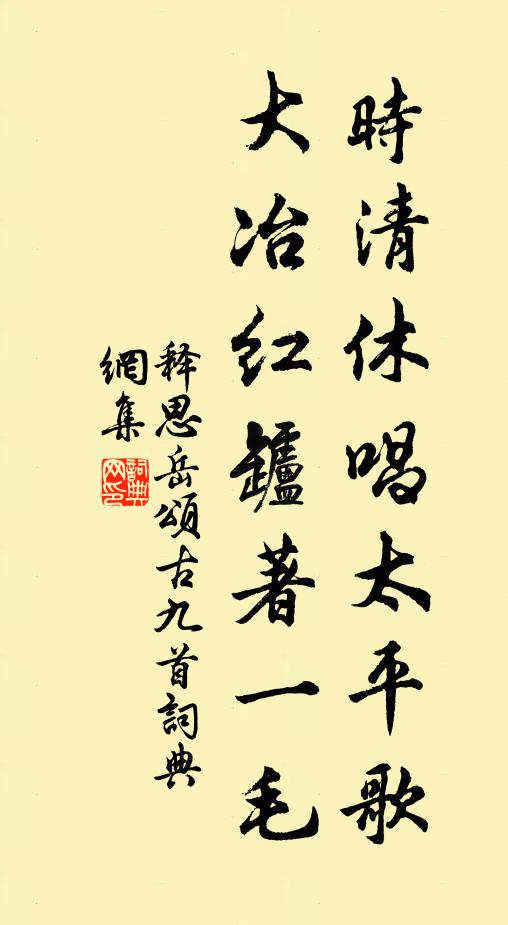 時清休唱太平歌
大冶红鑪著一毛
释思岳頌古九首詞典
網集
詞典網印